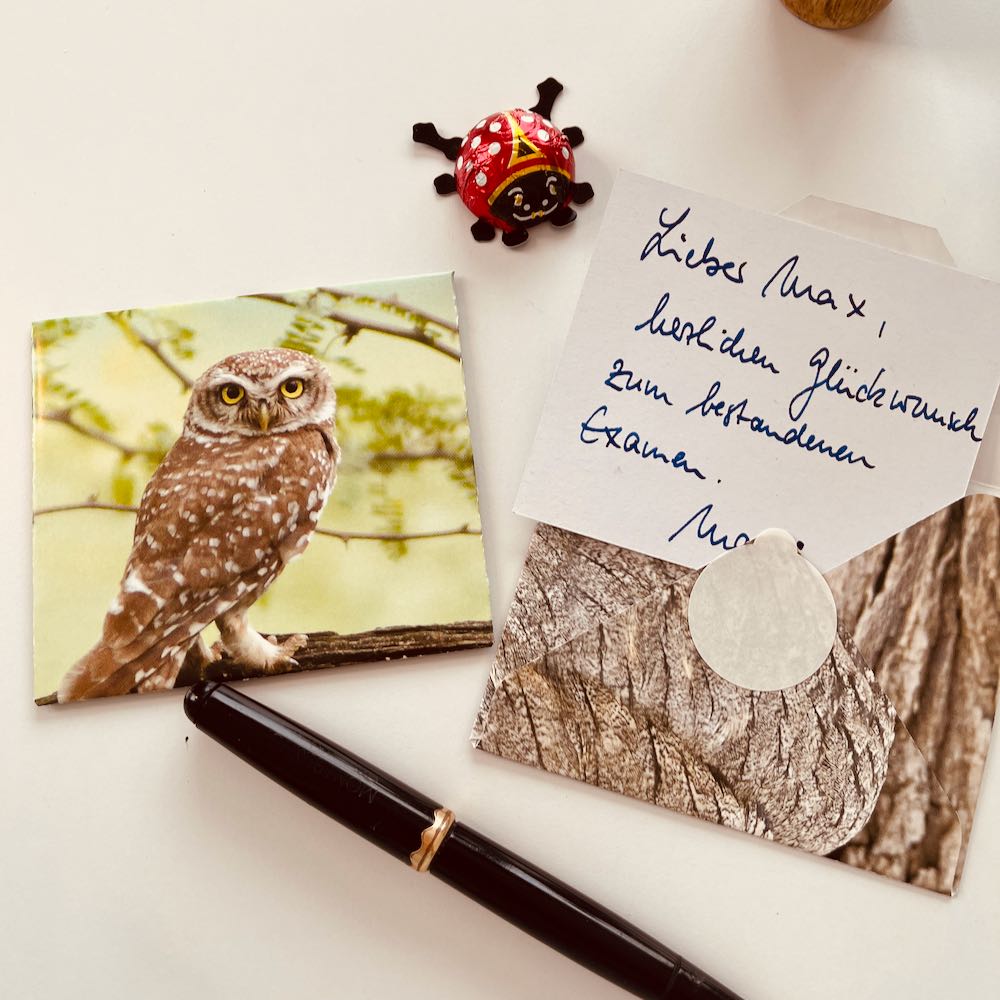 Lieber Max,
herzlichen Glückwunsch
zum bestandenen
Examen.